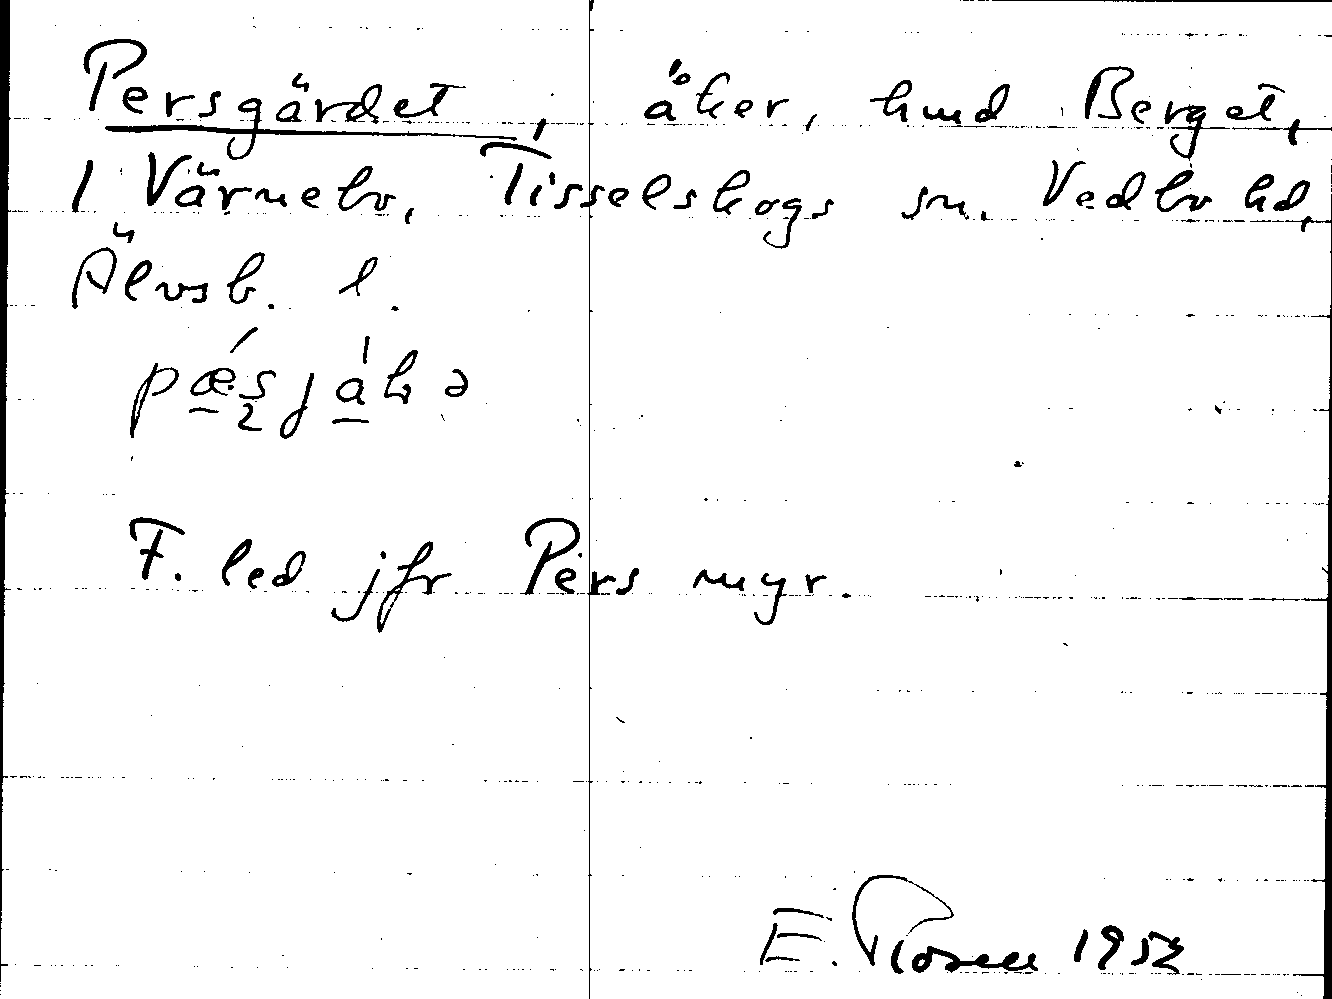 Persgärdet, åker, hmd Berget,
1 Värnebo, Tisselskogs sn. Vedbo hd,
Älvsb. l.
F. led jfr Persmyr.
E. Rosen 1952